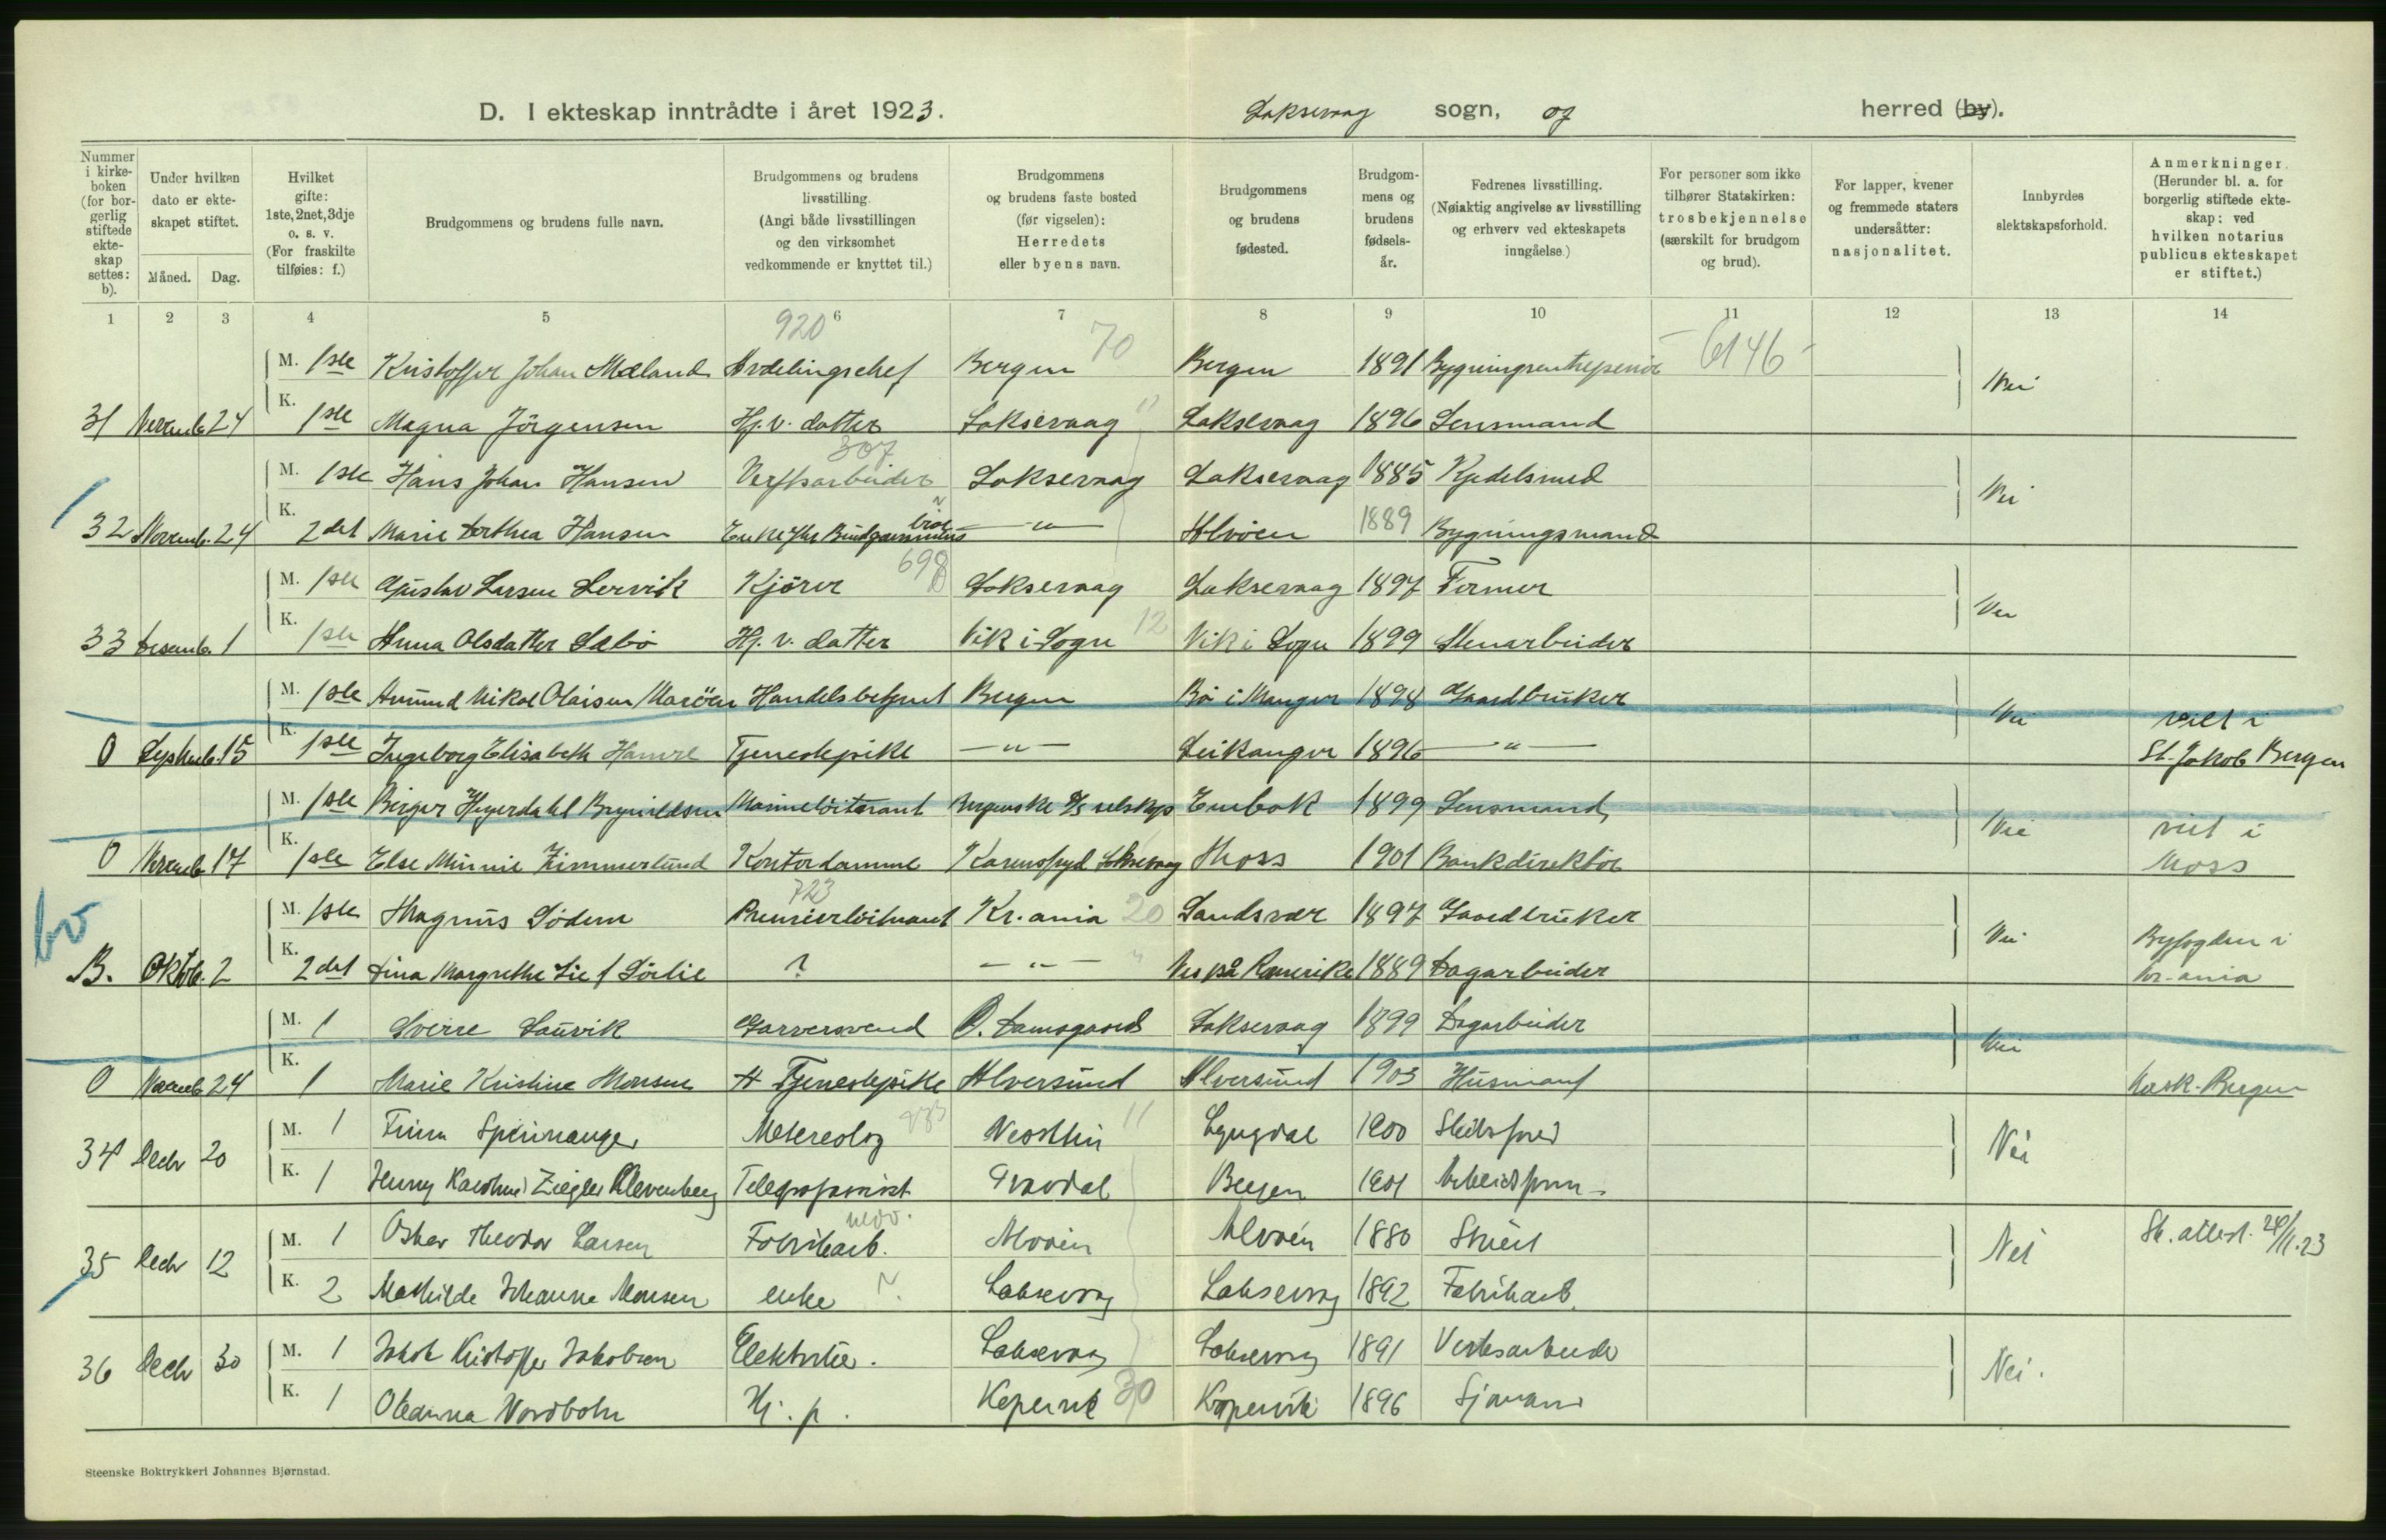 D. I ekteskap inntrådte i året 1923. Laksevaag sogn, og herred (by).
Nummer i kirkeboken (for borgerlig stiftede ekteskap settes: b).
Under hvilken dato er ekteskapet stiftet.
Måned. Dag.
Hvilket gifte: 1ste, 2net, 3dje o. s. v. (For fraskilte tilføies: f.)
Brudgommens og brudens fulle navn.
Brudgommens og brudens livsstilling. (Angi både livsstillingen og den virksomhet vedkommende er knyttet til.)
Brudgommens og brudens faste bosted (før vigselen): Herredets eller byens navn.
Brudgommens og brudens fødested.
Brudgommens og brudens fødselsår.
Fedrenes livsstilling. (Nøiaktig angivelse av livsstilling og erhverv ved ekteskapets inngåelse.)
For personer som ikke tilhører Statskirken: trosbekjennelse (særskilt for brudgom og brud).
For lapper, kvener og fremmede staters undersåtter: nasjonalitet.
Innbyrdes slektskapsforhold.
Anmerkninger. (Herunder bl. a. for borgerlig stiftede ekteskap: ved hvilken notarius publicus ekteskapet er stiftet.)
1 2 3 4 5 6 7 8 9 10 11 12 13 14
920 70 6146
M. 1ste Kristoffer Johan Mæland Avdelingschef Bergen Bergen 1891 Bygningsentreprenör Nei
31 Novemb. 24 K. 1ste Magna Jörgensen Hj. v. datter Laksevaag Laksevaag 1896 Lensmand
307
M. 1ste Hans Johan Hansen Verftsarbeider Laksevaag Laksevaag 1885 Kjedelsmed Nei
32 Novemb. 24 K. 2det Marie Dorthea Hansen Enke efter Brudgommens bror — " — Alvöen 1889 Bygningsmand
698
M. 1ste Gustav Larsen Lervik Kjörer Laksevaag Laksevaag 1897 Former Nei
33 Desemb. 1 K. 1ste Anna Olsdatter Sæbö Hj. v. datter Vik i Sogn 12 Vik i Sogn 1899 Stenarbeider
M. 1ste Amund Nikol Olaisen Maröen Handelsbetjent Bergen Bö i Manger 1898 Gaardbruker Nei viet i
0 Septemb. 15 K. 1ste Ingeborg Elisabeth Hamre Tjenestepike — " — Leikanger 1896 — " — St. Jakob Bergen
M. 1ste Birger Heyerdahl Brynildsen Marinelöitnant Bergenske D/s selskap Enebak 1899 Lensmand Nei viet i
0 Novemb. 17 K. 1ste Else Minnie Zimmerlund Kontordamme Laksevaag Moss 1901 Bankdirektör Moss
723
M. 1ste Magnus Södem Premierlöitnant Kr.ania 20 Sandsvær 1897 Gaardbruker Nei Byfogden i
B. Oktob. 2 K. 2det Dina Margrethe Lie f Sörlie ? — " — Nes på Romerike 1889 Dagarbeider Kr.ania
M. 1 Sverre Sauvik Garversvend O. Damsgaard Laksevaag 1899 Dagarbeider Nei
0 Novemb. 24 K. 1 Marie Kristine Monsen Tjenestepike Alversund Alversund 1903 Husmand Bergen
M. 1 Finn Spinnanger Metereolog 11 Lyngdal 1900 Nei
34 Decbr 20 K. 1 Jenny Ziegler Clevenberg Telegrafist Gravdal Bergen 1901 Arbeidsform
M. 1 Oskar Theodor Larsen Fabrikarb. Alvöen Alvöen 1880 Nei Sk. attest. 28/11.23
35 Decbr 12 K. 2 Mathilde Johanne Monsen enke Laksevaag Laksevaag 1892 Fabrikarb.
M. 1 Jakob Kristoffer Jakobsen Elektriker. Laksevaag Laksevaag 1891 Verksarbeider Nei.
36 Decbr 30 K. 1 Oledina Nordbohn Hj. p. Kopervik 30 Kopervik 1896 Sjömann
Steenske Boktrykkeri Johannes Bjørnstad.